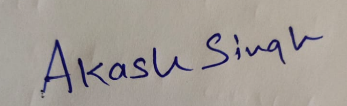 Akash Singh